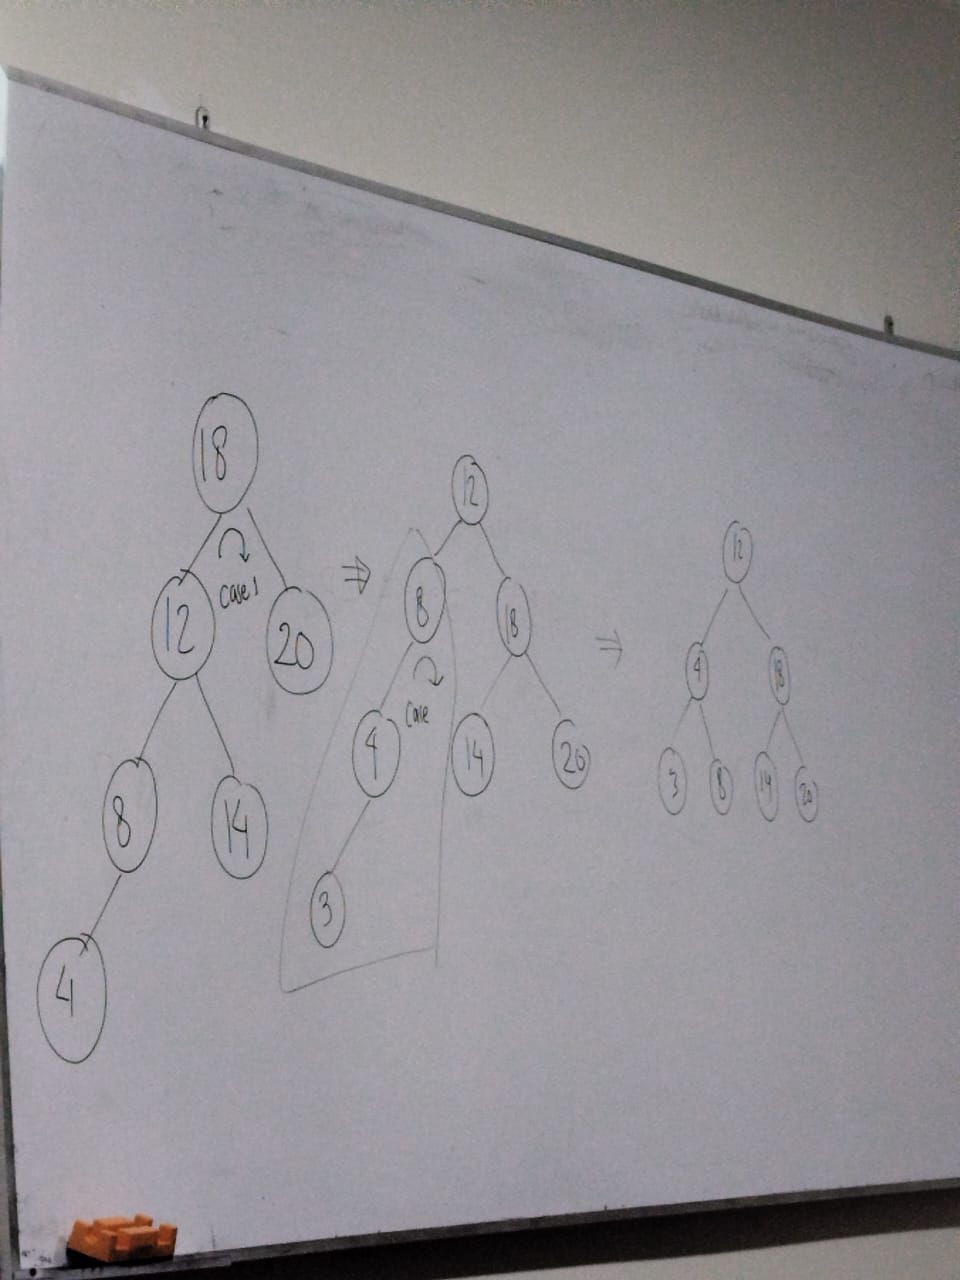 18
12
20
Case 1
8
14
4
⇒
12
8
18
Case
4
14
20
3
⇒
12
4
18
3
8
14
20